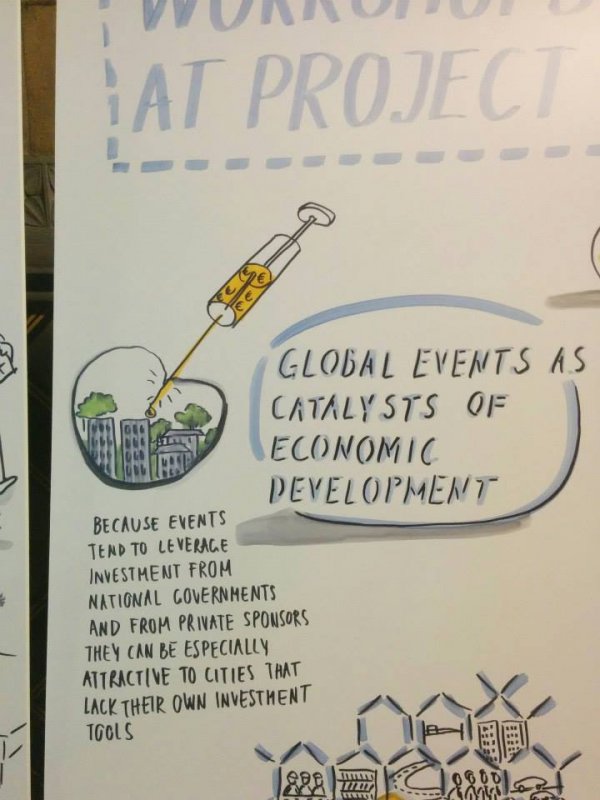 WORKSHOPS
AT PROJECT
€ € € € €
GLOBAL EVENTS AS
CATALYSTS OF
ECONOMIC
DEVELOPMENT
BECAUSE EVENTS
TEND TO LEVERAGE
INVESTMENT FROM
NATIONAL GOVERNMENTS
AND FROM PRIVATE SPONSORS
THEY CAN BE ESPECIALLY
ATTRACTIVE TO CITIES THAT
LACK THEIR OWN INVESTMENT
TOOLS